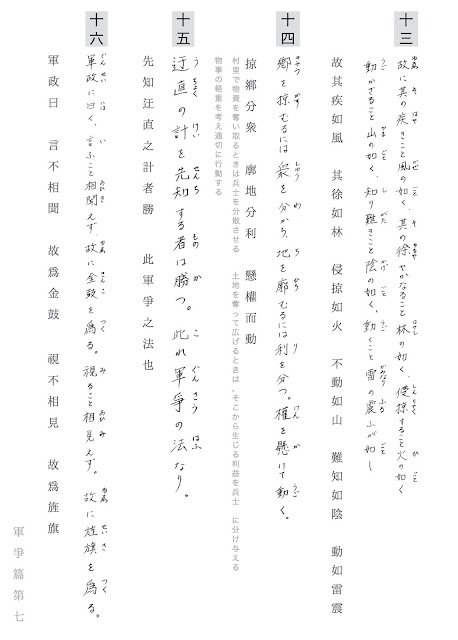 十三
故に其の疾きこと風の如く、其の徐やかなること林の如く、侵掠すること火の如く
動かざること山の如く、知り難きこと陰の如く、動くこと雷の震ふが如し
故其疾如風　其徐如林　侵掠如火　不動如山　難知如陰　動如雷震
十四
郷を掠むるには衆を分かち、地を廓むるには利を分つ。權を懸けて動く。
掠郷分衆　廓地分利　懸權而動
村里で物資を奪い取るときは兵士を分散させる　土地を奪って広げるときは、そこから生じる利益を兵士　に分け与える
物事の軽重を考え適切に行動する
十五
迂直の計を先知する者は勝つ。此れ軍爭の法なり。
先知迂直之計者勝　此軍爭之法也
十六
軍政に曰く、言ふこと相聞えず、故に金鼓を爲る。視ること相見えず。故に旌旗を爲る。
軍政曰　言不相聞　故爲金鼓　視不相見　故爲旌旗
軍爭篇第七